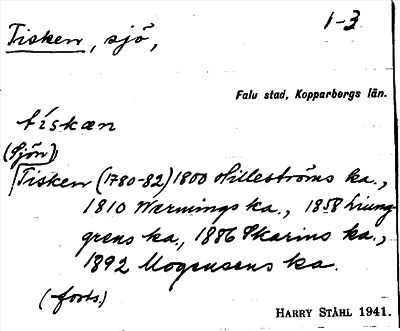 Tisken, sjö,
1-3
Falu stad, Kopparbergs län.
tískan
(Sjön)
Tisken (1780-82) 1800 Hilleströms ka.,
1810 Warmings ka., 1858 Liung
grens ka., 1886 Skarins ka.,
1892 Mogensens ka.
(forts.)
HARRY STÅHL 1941.